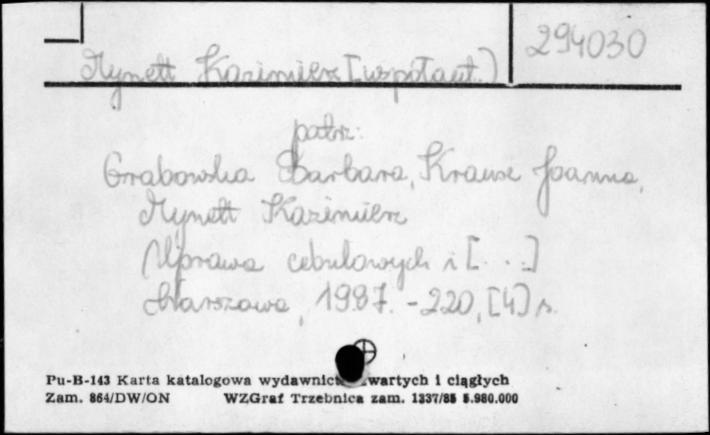 294030
Mynett Kazimierz [współaut.)
patrz:
Grabowska Barbara, Krause Joanna,
Mynett Kazimierz
Uprawa cebulowych i [...]
Warszawa, 1987. - 220, [4] s.
Pu-B-143 Karta katalogowa wydawnictw zwartych i ciągłych
Zam. 864/DW/ON WZGraf Trzebnica zam. 1337/85 5.980.000